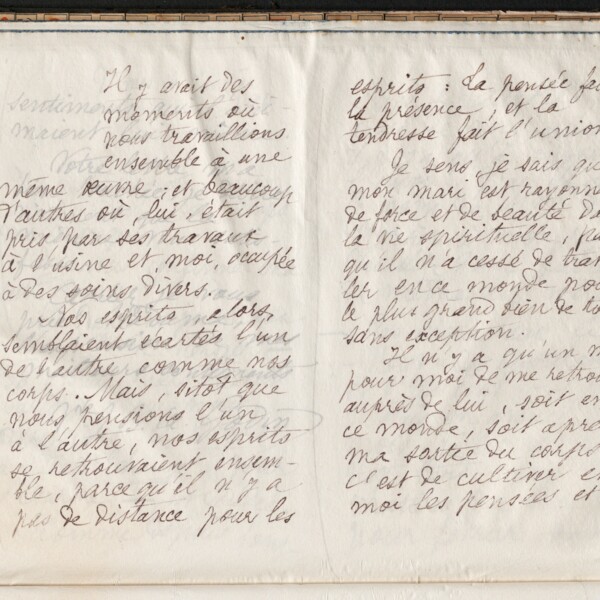 Il y avait des
moments où
nous travaillions
ensemble à une
même œuvre ; et beaucoup
d'autres où, lui, était
pris par ses travaux
à l'usine et, moi, occupée
à des soins divers.
Nos esprits, alors,
semblaient écartés l'un
de l'autre comme nos
corps. Mais, sitôt que
nous pensions l'un
à l'autre, nos esprits
se retrouvaient ensem-
ble, parce qu'il n'y a
pas de distance pour les
esprits : La pensée fai
la présence, et la
tendresse fait l'union
Je sens, je sais qu
mon mari est rayonn
de force et de beauté da
la vie spirituelle, pa
qu'il n'a cessé de trav
ler en ce monde pou
le plus grand bien de to
sans exception.
Il n'y a qu'un m
pour moi de me retrou
auprès de lui, soit en
ce monde, soit aprè
ma sortie du corps
c'est de cultiver en
moi les pensées et